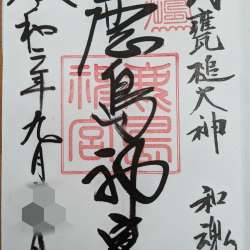 武甕槌大神 和魂
鹿島神宮
鹿島神宮
令和二年九月 日